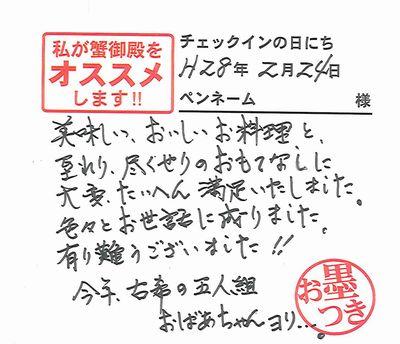 私が蟹御殿を
オススメ
します!!
チェックインの日にち
H28年 2月24日
ペンネーム 様
美味しい、おいしいお料理と、
至れり、尽くせりのおもてなしに
大変、たいへん満足いたしました。
色々とお世話に成りました。
有り難うございました!!
今年、古希の五人組
おばあちゃんヨリ....
お墨つき